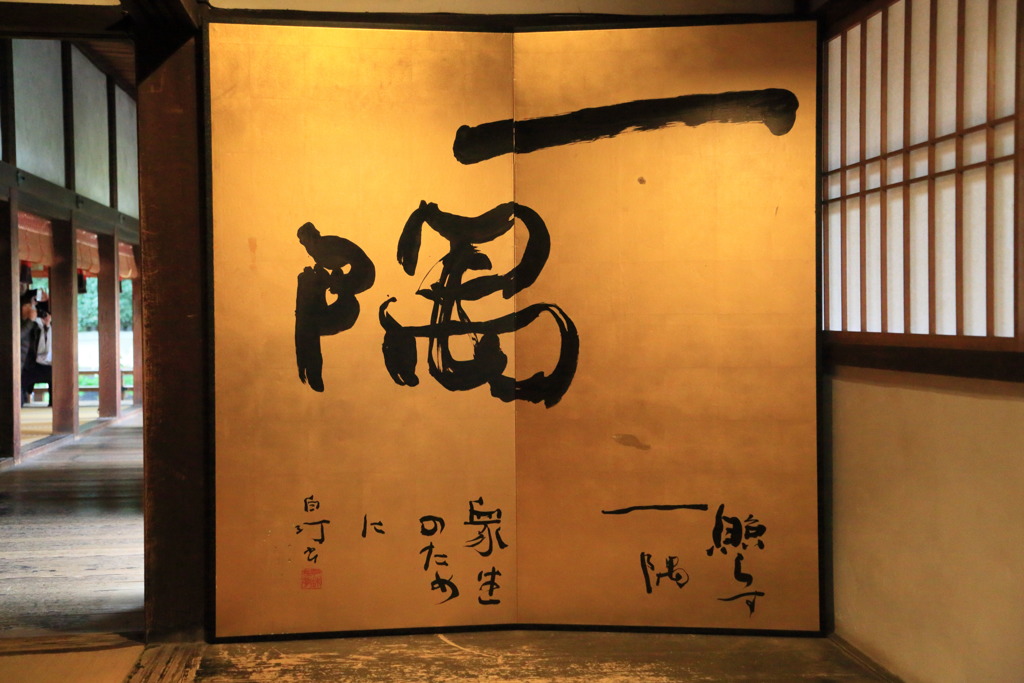 一
隅
照らす
一隅
衆生
のため
に